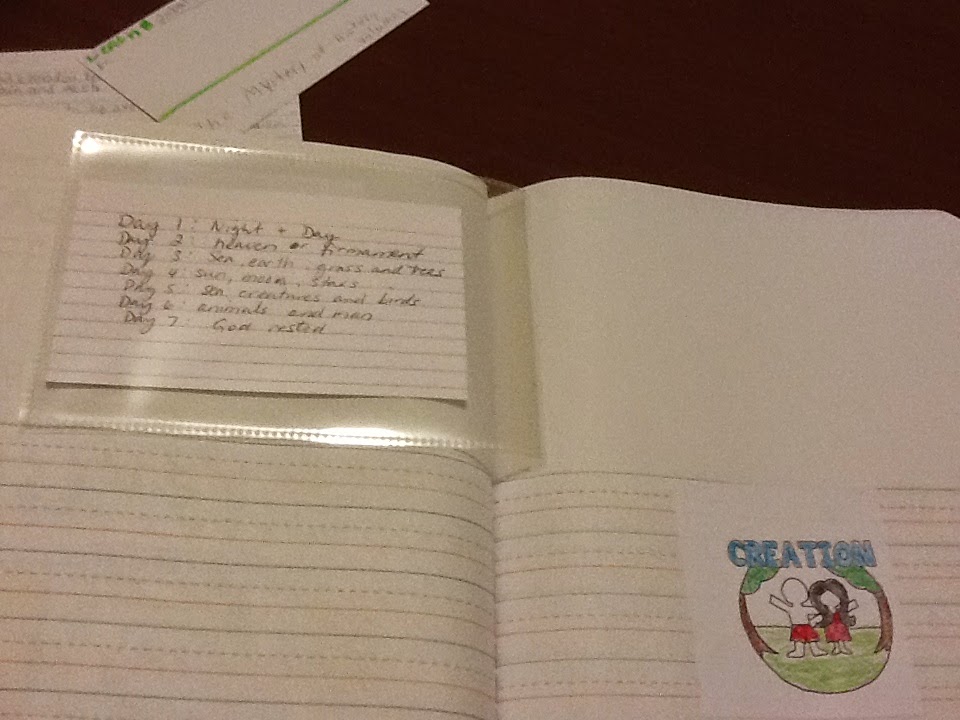 Day 1: Night + Day
Day 2: heaven or firmament
Day 3: Sea, earth, grass and trees
Day 4: sun, moon, stars
Day 5: sea creatures and birds
Day 6: animals and man
Day 7: God rested
CREATION